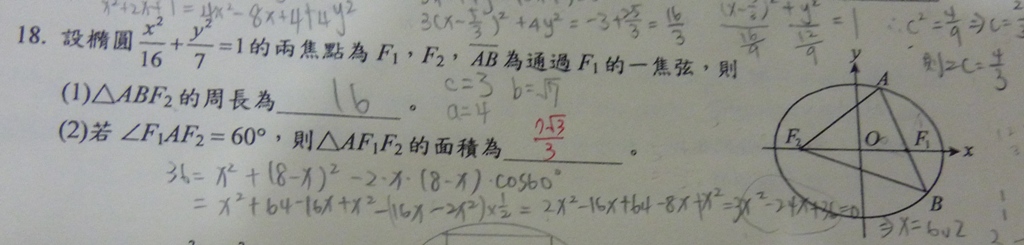 x²+2x+1 = 4x²-8x+4+4y²
3(x-)²+4y² = -3+25/3 = 16/3
y²/(12/9) = 1
∴c²=4/9 ⇒ c=
2c=4/3
18. 設橢圓 x²/16 + y²/7 = 1的兩焦點為 F₁,F₂,AB為通過F₁的一焦弦,則
(1)△ABF₂的周長為 16 。 c=3 b=√7
a=4
(2)若 ∠F₁AF₂=60°,則△AF₁F₂的面積為 7√3/3 。
36 = x²+(8-x)²-2·x·(8-x)·cos60°
= x²+64-16x+x²-(16x-2x²)×1/2 = 2x²-16x+64-8x+x²=3x²-24x+36=0
⇒x=6or2
y
A
F₂ O F₁ x
B